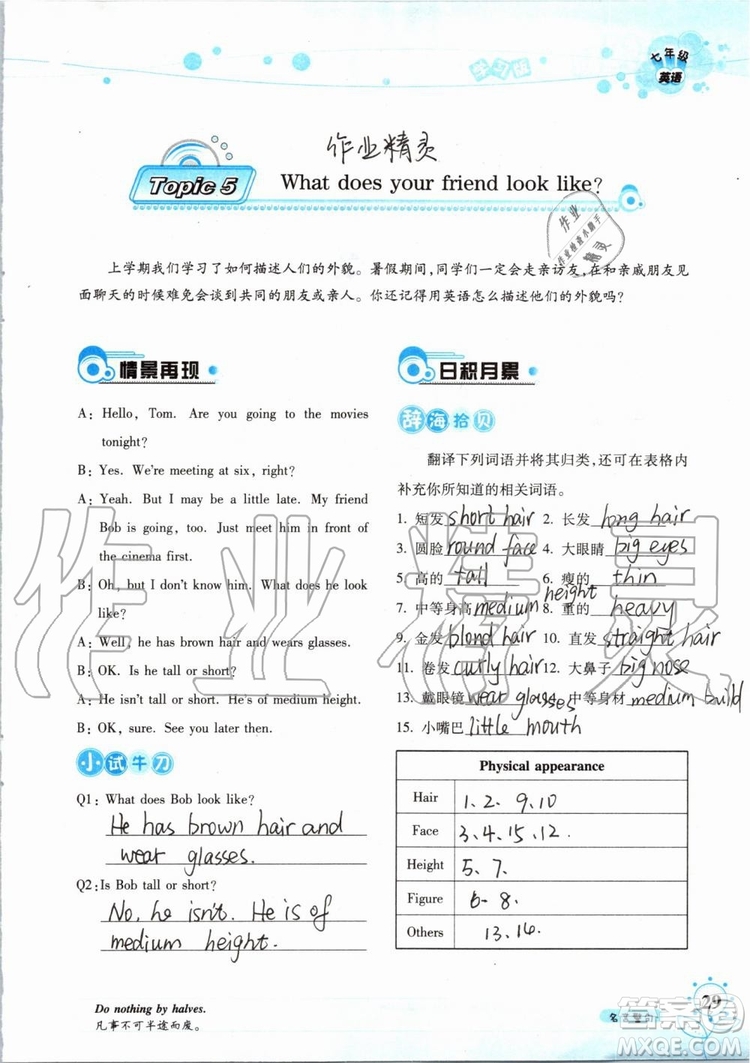 学习报
七年级
英语
作业精灵
Topic 5
What does your friend look like?
作业
作业检查小助手
精灵
上学期我们学习了如何描述人们的外貌。暑假期间，同学们一定会走亲访友，在和亲戚朋友见
面聊天的时候难免会谈到共同的朋友或亲人。你还记得用英语怎么描述他们的外貌吗？
情景再现
A: Hello, Tom. Are you going to the movies
tonight?
B: Yes. We're meeting at six, right?
A: Yeah. But I may be a little late. My friend
Bob is going, too. Just meet him in front of
the cinema first.
B: Oh, but I don't know him. What does he look
like?
A: Well, he has brown hair and wears glasses.
B: OK. Is he tall or short?
A: He isn't tall or short. He's of medium height.
B: OK, sure. See you later then.
小试牛刀
Q1: What does Bob look like?
He has brown hair and
wear glasses.
Q2: Is Bob tall or short?
No, he isn't. He is of
medium height.
日积月累
辞海拾贝
翻译下列词语并将其归类，还可在表格内
补充你所知道的相关词语。
1. 短发 short hair 2. 长发 long hair
3. 圆脸 round face 4. 大眼睛 big eyes
5. 高的 tall 6. 瘦的 thin
7. 中等身高 medium height 8. 重的 heavy
9. 金发 blond hair 10. 直发 straight hair
11. 卷发 curly hair 12. 大鼻子 big nose
13. 戴眼镜 wear glasses 14. 中等身材 medium build
15. 小嘴巴 little mouth
Physical appearance
Hair 1、2、9、10
Face 3、4、15、12.
Height 5、7.
Figure 6、8.
Others 13、14.
作业精灵
Do nothing by halves.
凡事不可半途而废。
29
答案圈
MXQE.COM